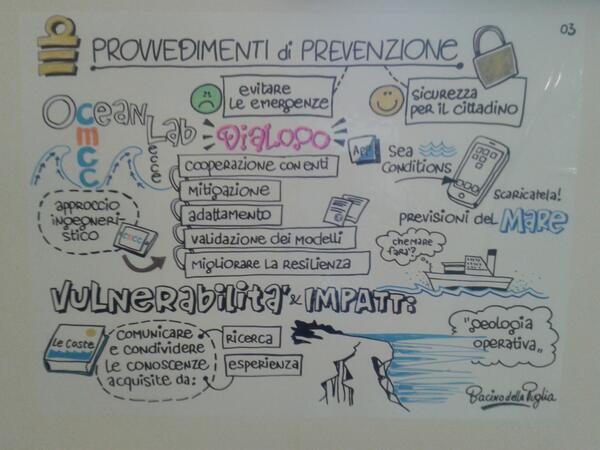 03
PROVVEDIMENTI di PREVENZIONE
evitare
le emergenze
sicurezza
per il cittadino
Ocean Lab
cmcc
DiALOGO
App
Sea
Conditions
scaricatela!
previsioni del MARE
cooperazione con enti
Mitigazione
adattamento
validazione dei modelli
Migliorare la resilienza
approccio
ingegneri-
stico
cmcc
che mare
farà?
VULNERABILITÀ & IMPATTI:
Le Coste
comunicare
e condividere
le conoscenze
acquisite da:
ricerca
esperienza
"geologia
operativa"
Bacino della Puglia